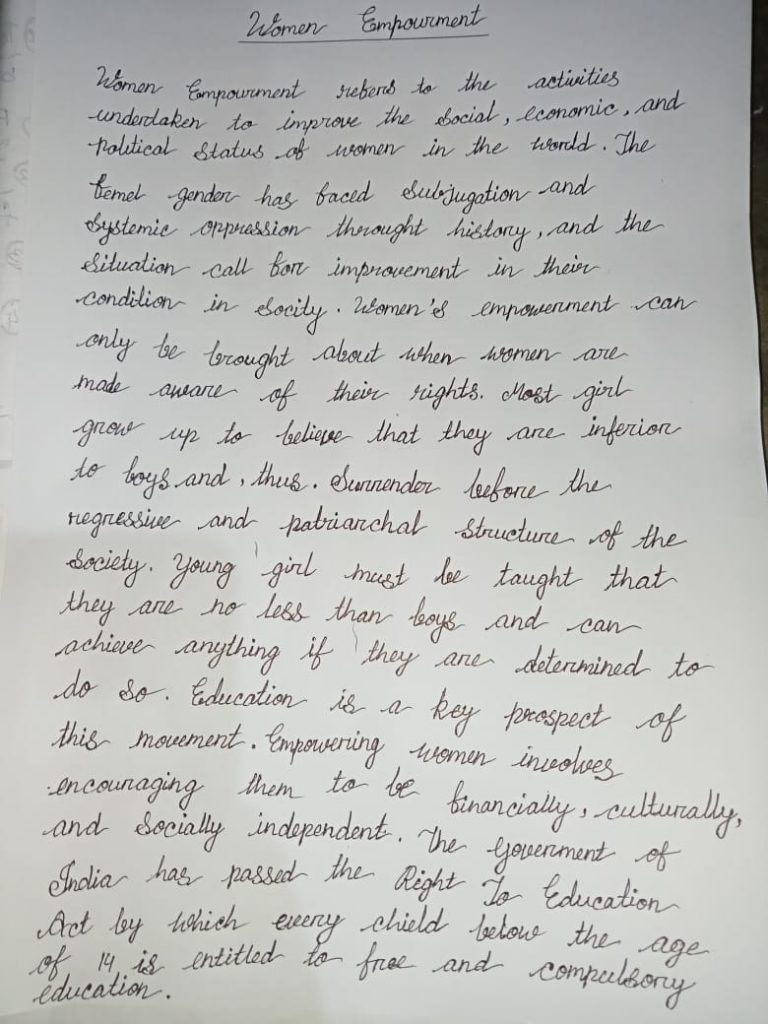 Women Empourment
Women Empourment refers to the activities
undertaken to improve the social, economic, and
political status of women in the world. The
femel gender has faced subjugation and
systemic oppression throught history, and the
situation call for improvement in their
condition in socity. Women's empowerment can
only be brought about when women are
made aware of their rights. Most girl
grow up to believe that they are inferior
to boys and, thus. Surrender before the
regressive and patriarchal structure of the
society. Young girl must be taught that
they are no less than boys and can
achieve anything if they are determined to
do so. Education is a key prospect of
this movement. Empowering women involves
encouraging them to be financially, culturally,
and socially independent. The government of
India has passed the Right To Education
Act by which every chield below the age
of 14 is entitled to free and compulsory
education.